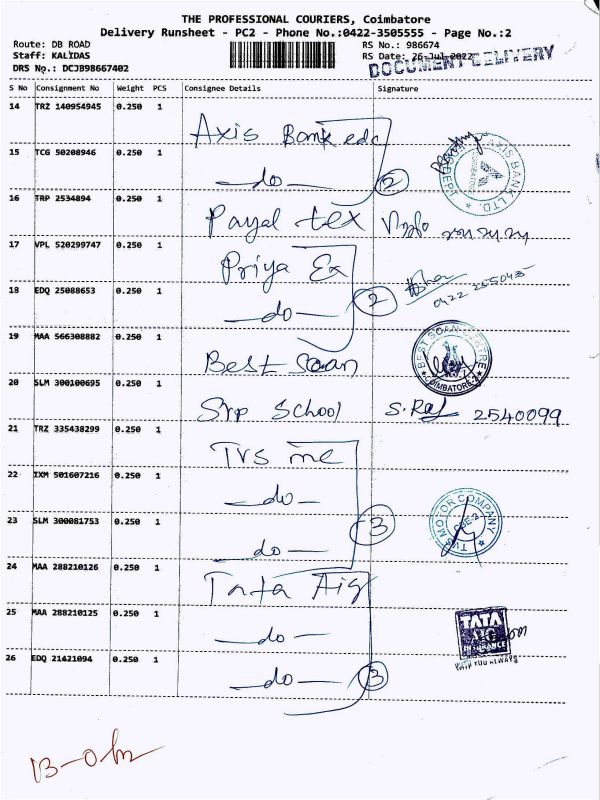 THE PROFESSIONAL COURIERS, Coimbatore
Delivery Runsheet - PC2 - Phone No.:0422-3505555 - Page No.:2
Route: DB ROAD RS No.: 986674
Staff: KALIDAS RS Date: 26-Jul-2022
DRS No.: DCJB98667402 DOCUMENT DELIVERY
S No Consignment No Weight PCS Consignee Details Signature
14 TRZ 140954945 0.250 1 Axis Bank edc
15 TCG 50208946 0.250 1 —do— 2 AXIS BANK LTD.
16 TRP 2534894 0.250 1 Payal tex
17 VPL 520299747 0.250 1 Priya Ex
18 EDQ 25088653 0.250 1 —do— 2
19 MAA 566308882 0.250 1 Best Scan BEST SCAN CENTRE COIMBATORE-2
20 SLM 300100695 0.250 1 Srp School S. Raj 2540099
21 TRZ 335438299 0.250 1 TVS mc
22 IXM 501607216 0.250 1 —do—
23 SLM 300081753 0.250 1 —do— 3 TVS MOTOR COMPANY CBE-2
24 MAA 288210126 0.250 1 Tata Aig
25 MAA 288210125 0.250 1 —do— TATA AIG INSURANCE
WITH YOU ALWAYS
26 EDQ 21421094 0.250 1 —do— 3